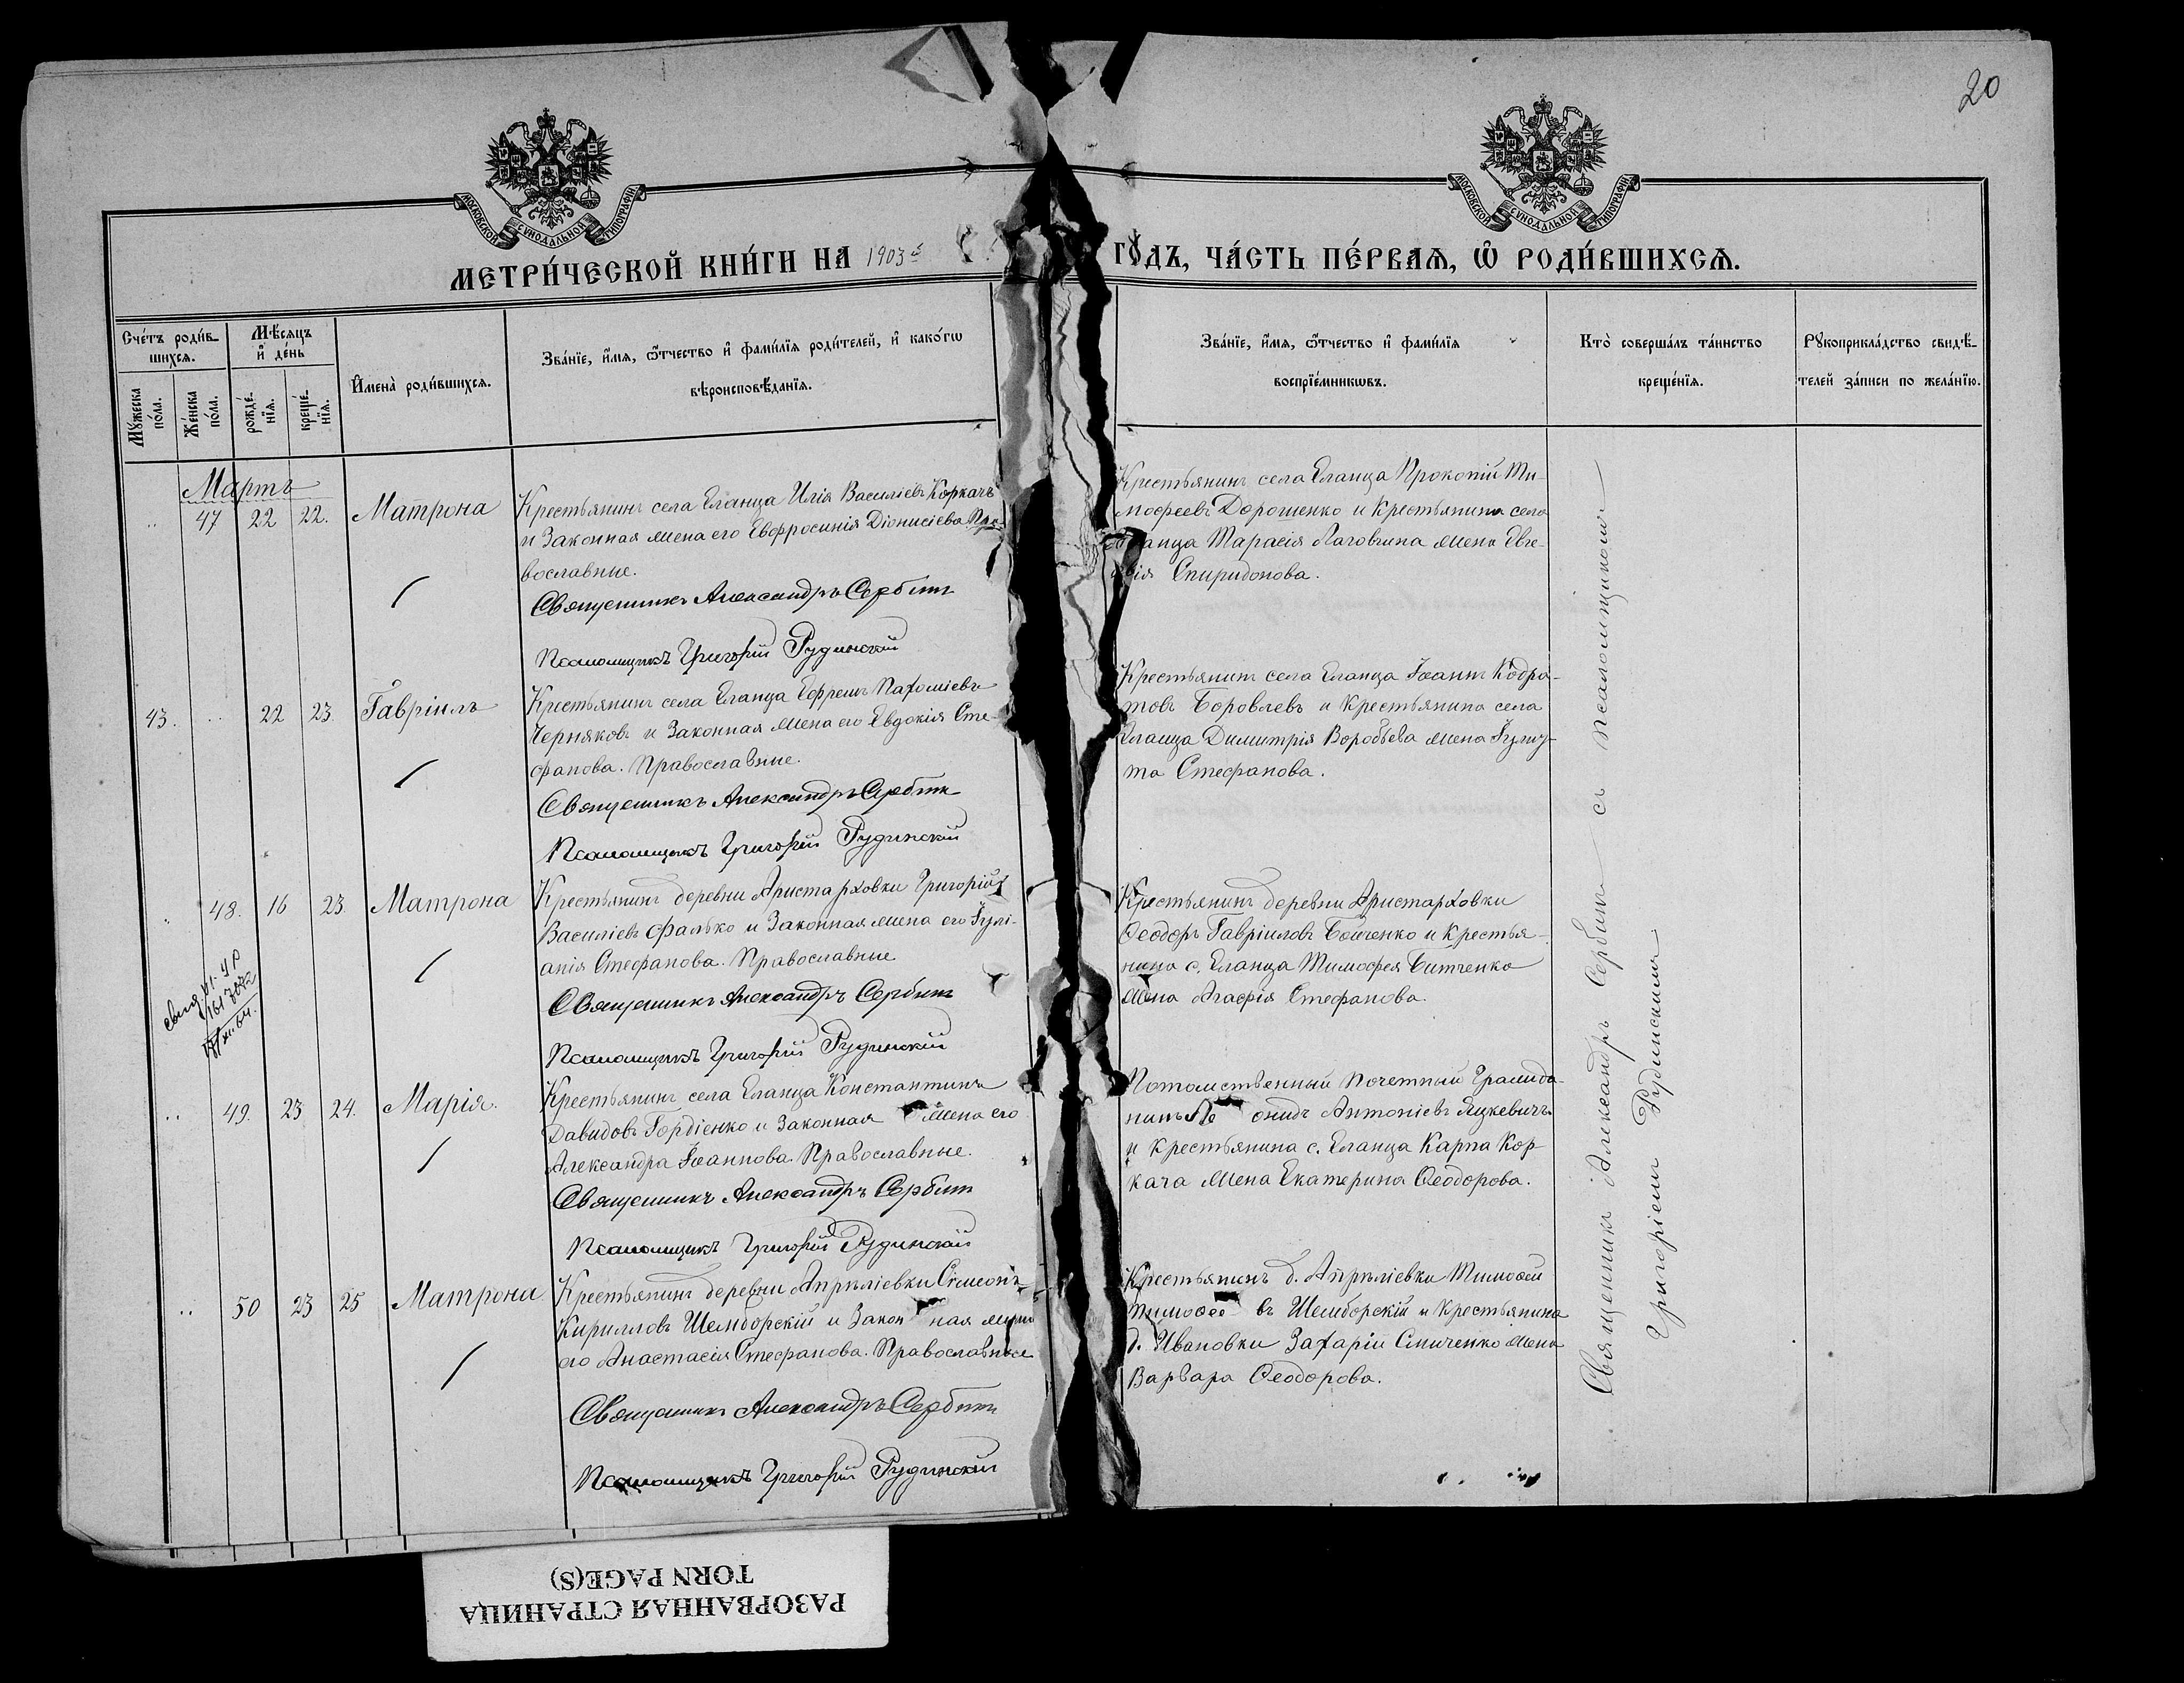 20
МОСКОВСКОЙ СѴНОДАЛЬНОЙ ТИПОГРАФІИ
МОСКОВСКОЙ СѴНОДАЛЬНОЙ ТИПОГРАФІИ
МЕТРИ́ЧЕСКОЙ КНИ́ГИ НА 1903й ГО́ДЪ, ЧА́СТЬ ПЕ́РВАѦ, Ѡ҆ РОДИ́ВШИХСѦ.
Сче́тъ роди́в-
шихсѧ.
Мꙋ́жеска по́ла.
Же́нска по́ла.
Мѣ́сѧцъ и҆ де́нь
рожде́нїѧ.
креще́нїѧ.
И҆мена̀ роди́вшихсѧ.
Зва́нїе, и҆́мѧ, ѻ҆́тчество и҆ фами́лїѧ роди́телей, и҆ како́гѡ
вѣроисповѣ́данїѧ.
Зва́нїе, и҆́мѧ, ѻ҆́тчество и҆ фами́лїѧ
воспрїе́мникѡвъ.
Кто̀ соверша́лъ та́инство
креще́нїѧ.
Рꙋкоприкла́дство свидѣ́-
телей за́писи по жела́нїю.
Мартъ
47 22 22. Матрона
Крестьянинъ села Еланца Илія Василіевъ Коркачъ
и Законная жена его Евфросинія Діонисіева Пра-
вославные.
Священникъ Александръ Сербинъ
Псаломщикъ Григорій Рудинскій
Крестьянинъ села Еланца Прокопій Ти-
мофеевъ Дорошенко и Крестьянина села
Еланца Тарасія Лаговшина жена Евге-
нія Спиридонова.
43. 22 23 Гавріилъ
Крестьянинъ села Еланца Ефремъ Пахоміевъ
Черняковъ и Законная жена его Евдокія Сте-
фанова. Православные.
Священникъ Александръ Сербинъ
Псаломщикъ Григорій Рудинскій
Крестьянинъ села Еланца Іоаннъ Кодра-
товъ Боровлевъ и Крестьянина села
Еланца Димитрія Воробьева жена Іулит-
та Стефанова.
48. 16 23 Матрона
Крестьянинъ деревни Аристарховки Григорій
Василіевъ Фалько и Законная жена его Іулі-
анія Стефанова. Православные
Священникъ Александръ Сербинъ
Псаломщикъ Григорій Рудинскій
Крестьянинъ деревни Аристарховки
Ѳеодоръ Гавріиловъ Бойченко и Крестья-
нина с. Еланца Тимофея Битченко
жена Агафія Стефанова.
49. 23 24. Марія.
Крестьянинъ села Еланца Константинъ
Давидовъ Гордіенко и Законная жена его
Александра Іоаннова. Православные.
Священникъ Александръ Сербинъ
Псаломщикъ Григорій Рудинскій
Потомственный Почетный Гражда-
нинъ Леонидъ Антоніевъ Яцкевичъ
и Крестьянина с. Еланца Карпа Кор-
кача жена Екатерина Ѳеодорова.
50 23 25 Матрона
Крестьянинъ деревни Апреліевки Сімеонъ
Кирилловъ Шемборскій и Законная жена
его Анастасія Стефанова. Православные
Священникъ Александръ Сербинъ
Псаломщикъ Григорій Рудинскій
Крестьянинъ д. Апреліевки Тимоѳей
Тимоѳеевъ Шемборскій и Крестьянина
д. Ивановки Захаріи Спиченко жена
Варвара Ѳеодорова.
Священникъ Александръ Сербинъ съ псаломщикомъ
Григоріемъ Рудинскимъ
РАЗОРВАННАЯ СТРАНИЦА
TORN PAGE(S)